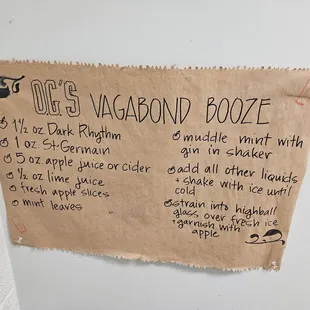 O.G.'S VAGABOND BOOZE
1½ oz Dark Rhythm
1 oz. St-Germain
5 oz apple juice or cider
½ oz lime juice
fresh apple slices
mint leaves
muddle mint with
gin in shaker
add all other liquids
+ shake with ice until
cold
strain into highball
glass over fresh ice
+ garnish with
apple